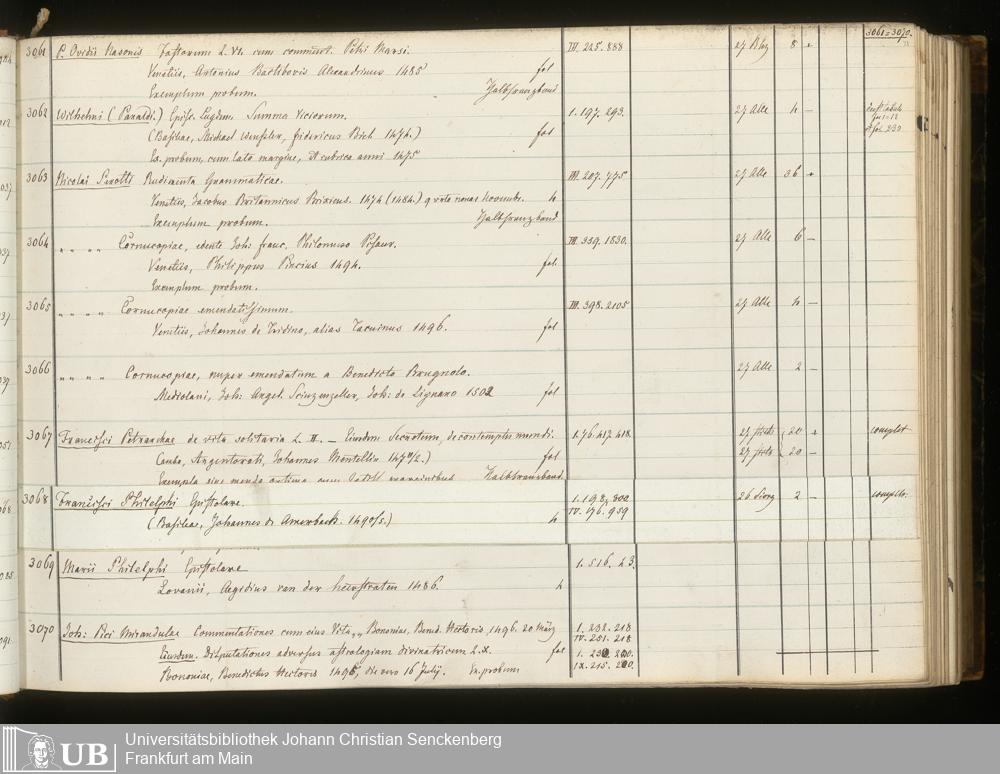 3061=3070.
3061 P. Ovidii Nasonis Fastorum L. VI. cum comment. Petri Marsi. IV. 225. 888 27 8 +
Venetiis, Antonius Battibovis Alexandrinus 1485 fol
Exemplum probum. Halbfranzband
3062 Wilhelmi (Paraldi) Episc. Lugdun. Summa viciorum. 1. 197. 293. 27 Alle 4 –
(Basileae, Michael Wenssler, fridericus Biel 1474.) fol fol. 230
Ex. probum, cum lato margine, et rubrica anni 1475
3063 Nicolai Perotti Rudimenta Grammaticae. III. 207. 775 27 Alle 36 +
Venetiis, Jacobus Britannicus Brixicus. 1474 (1484.) quarto nonas Novembr. 4
Exemplum probum. Halbfranzband
3064 " " " " Cornucopiae, edente Joh: franc. Philomuso Pisaur. III. 339. 1830. 27 Alle 6 –
Venetiis, Philippus Pincius 1494. fol
Exemplum probum.
3065 " " " " Cornucopiae emendatissimum. III. 398. 2105 27 Alle 4 –
Venetiis, Johannes de Tridino, alias Tacuinus 1496. fol
3066 " " " " Cornucopiae, nuper emendatum a Benedicto Brugnolo. 27 Alle 2 –
Mediolani, Joh: Angel. Scinzenzeller, Joh: de Lignano 1502 fol
3067 Francisci Petrarchae de vita solitaria L. II. – Eiusdem Secretum, de contemptu mundi. 1. 76. 417. 418. 27 20 + complet
Argentorati, Johannes Mentellin 147 1/2.) fol 27 20 –
Exempla sine menda optima cum Halbfranzband
3068 Francisci Philelphi Epistolare. 1. 198. 300 26 2 – complet.
(Basileae, Johannes de Amerbach. 1490/5.) 4 IV. 176. 959
3069 Marii Philelphi Epistolare 1. 516. 23.
Lovanii, Aegidius van der heerstraten 1486. 4
3070 Joh: Pici Mirandulae Commentationes cum eius Vita, „ Bononiae, Bened. Hectoris, 1496. 20 März 1. 232. 218
IV. 251. 218
Eiusdem. Disputationes adversus astrologiam divinatricem L. X. fol 1. 232. 220.
Bononiae, Benedictus Hectoris 1495, die vero 16 Julij. Ex. probum IX. 215. 220.
UB Universitätsbibliothek Johann Christian Senckenberg
Frankfurt am Main